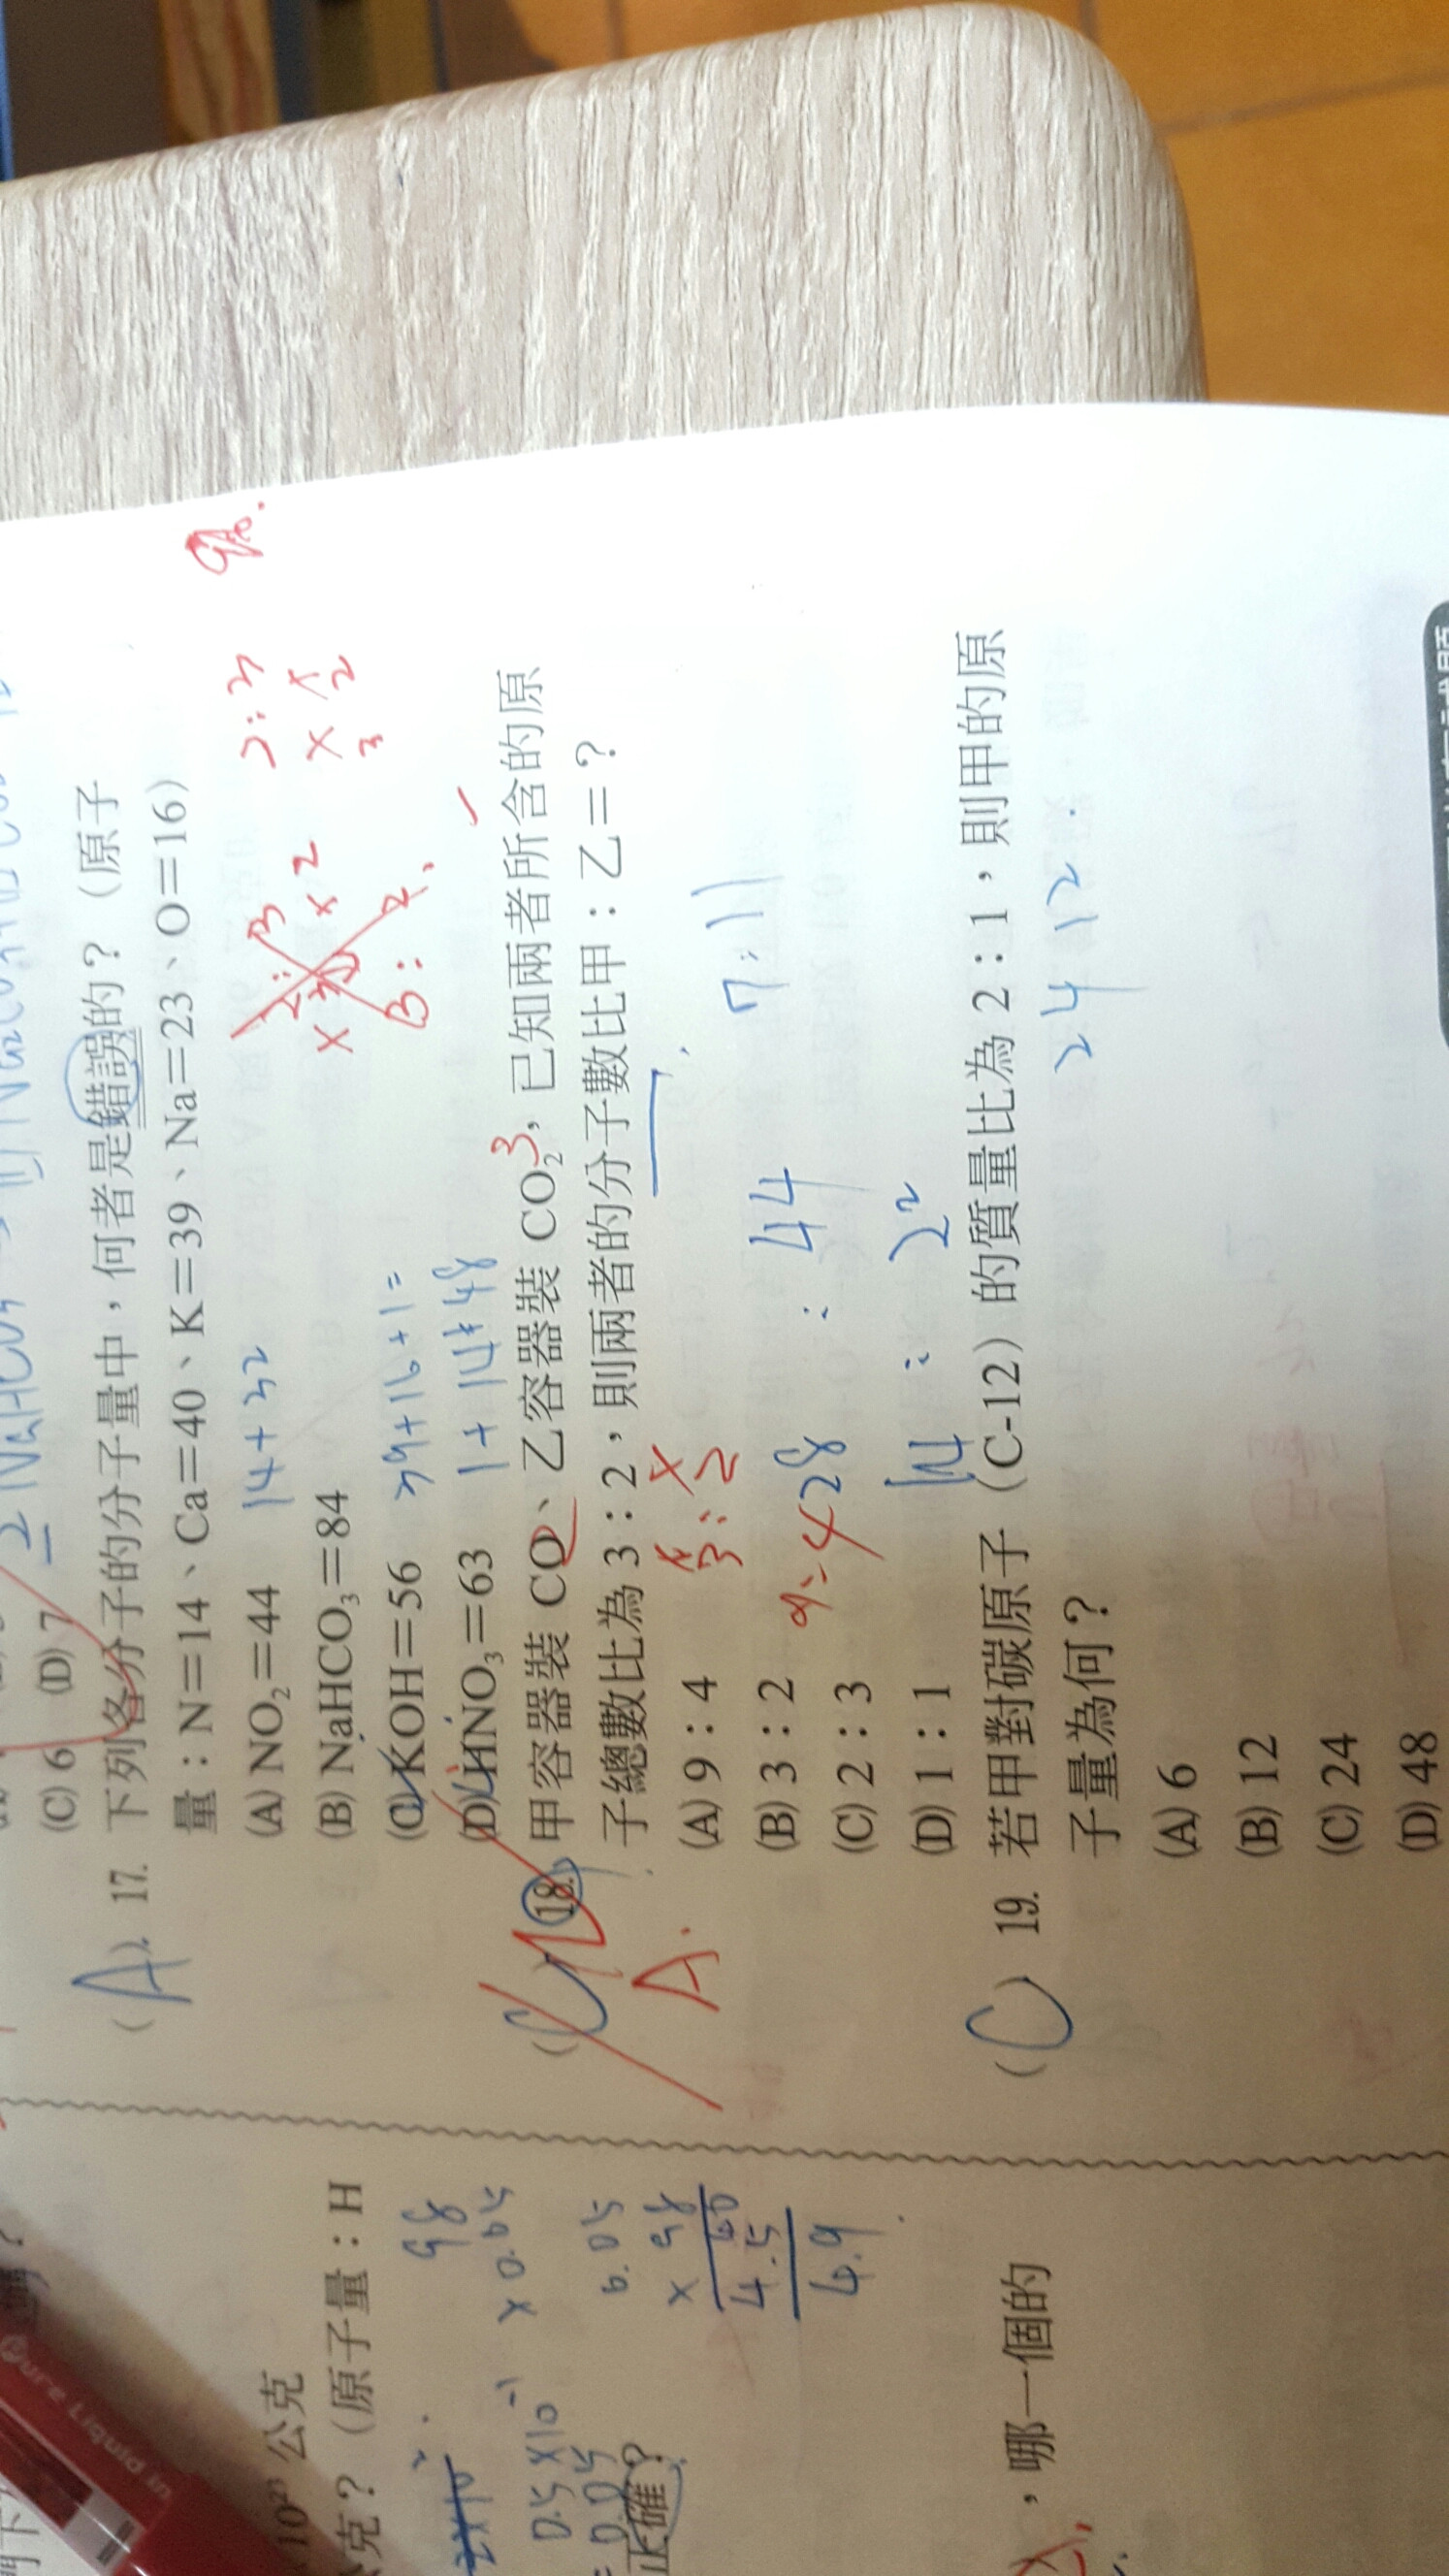 (C) 6 (D) 7
(A) 17. 下列各分子的分子量中,何者是錯誤的?(原子
量:N=14、Ca=40、K=39、Na=23、O=16)
(A) NO₂=44 14+32
(B) NaHCO₃=84
(C) KOH=56 39+16+1=
(D) HNO₃=63 1+14+48
(C) 18. 甲容器裝 CO、乙容器裝 CO₂,已知兩者所含的原
子總數比為 3:2,則兩者的分子數比甲:乙=?
A.
(A) 9:4
(B) 3:2 9:4 28 : 44 7:11
(C) 2:3
(D) 1:1 14 : 22
(C) 19. 若甲對碳原子(C-12)的質量比為 2:1,則甲的原
子量為何? 24 12
(A) 6
(B) 12
(C) 24
(D) 48
10²³ 公克
克?(原子量:H
98
× 0.05
0.5×10⁻¹
= 0.05
0.05
× 98
40
4.5
4.9
正確?
,哪一個的
Pure Liquid in